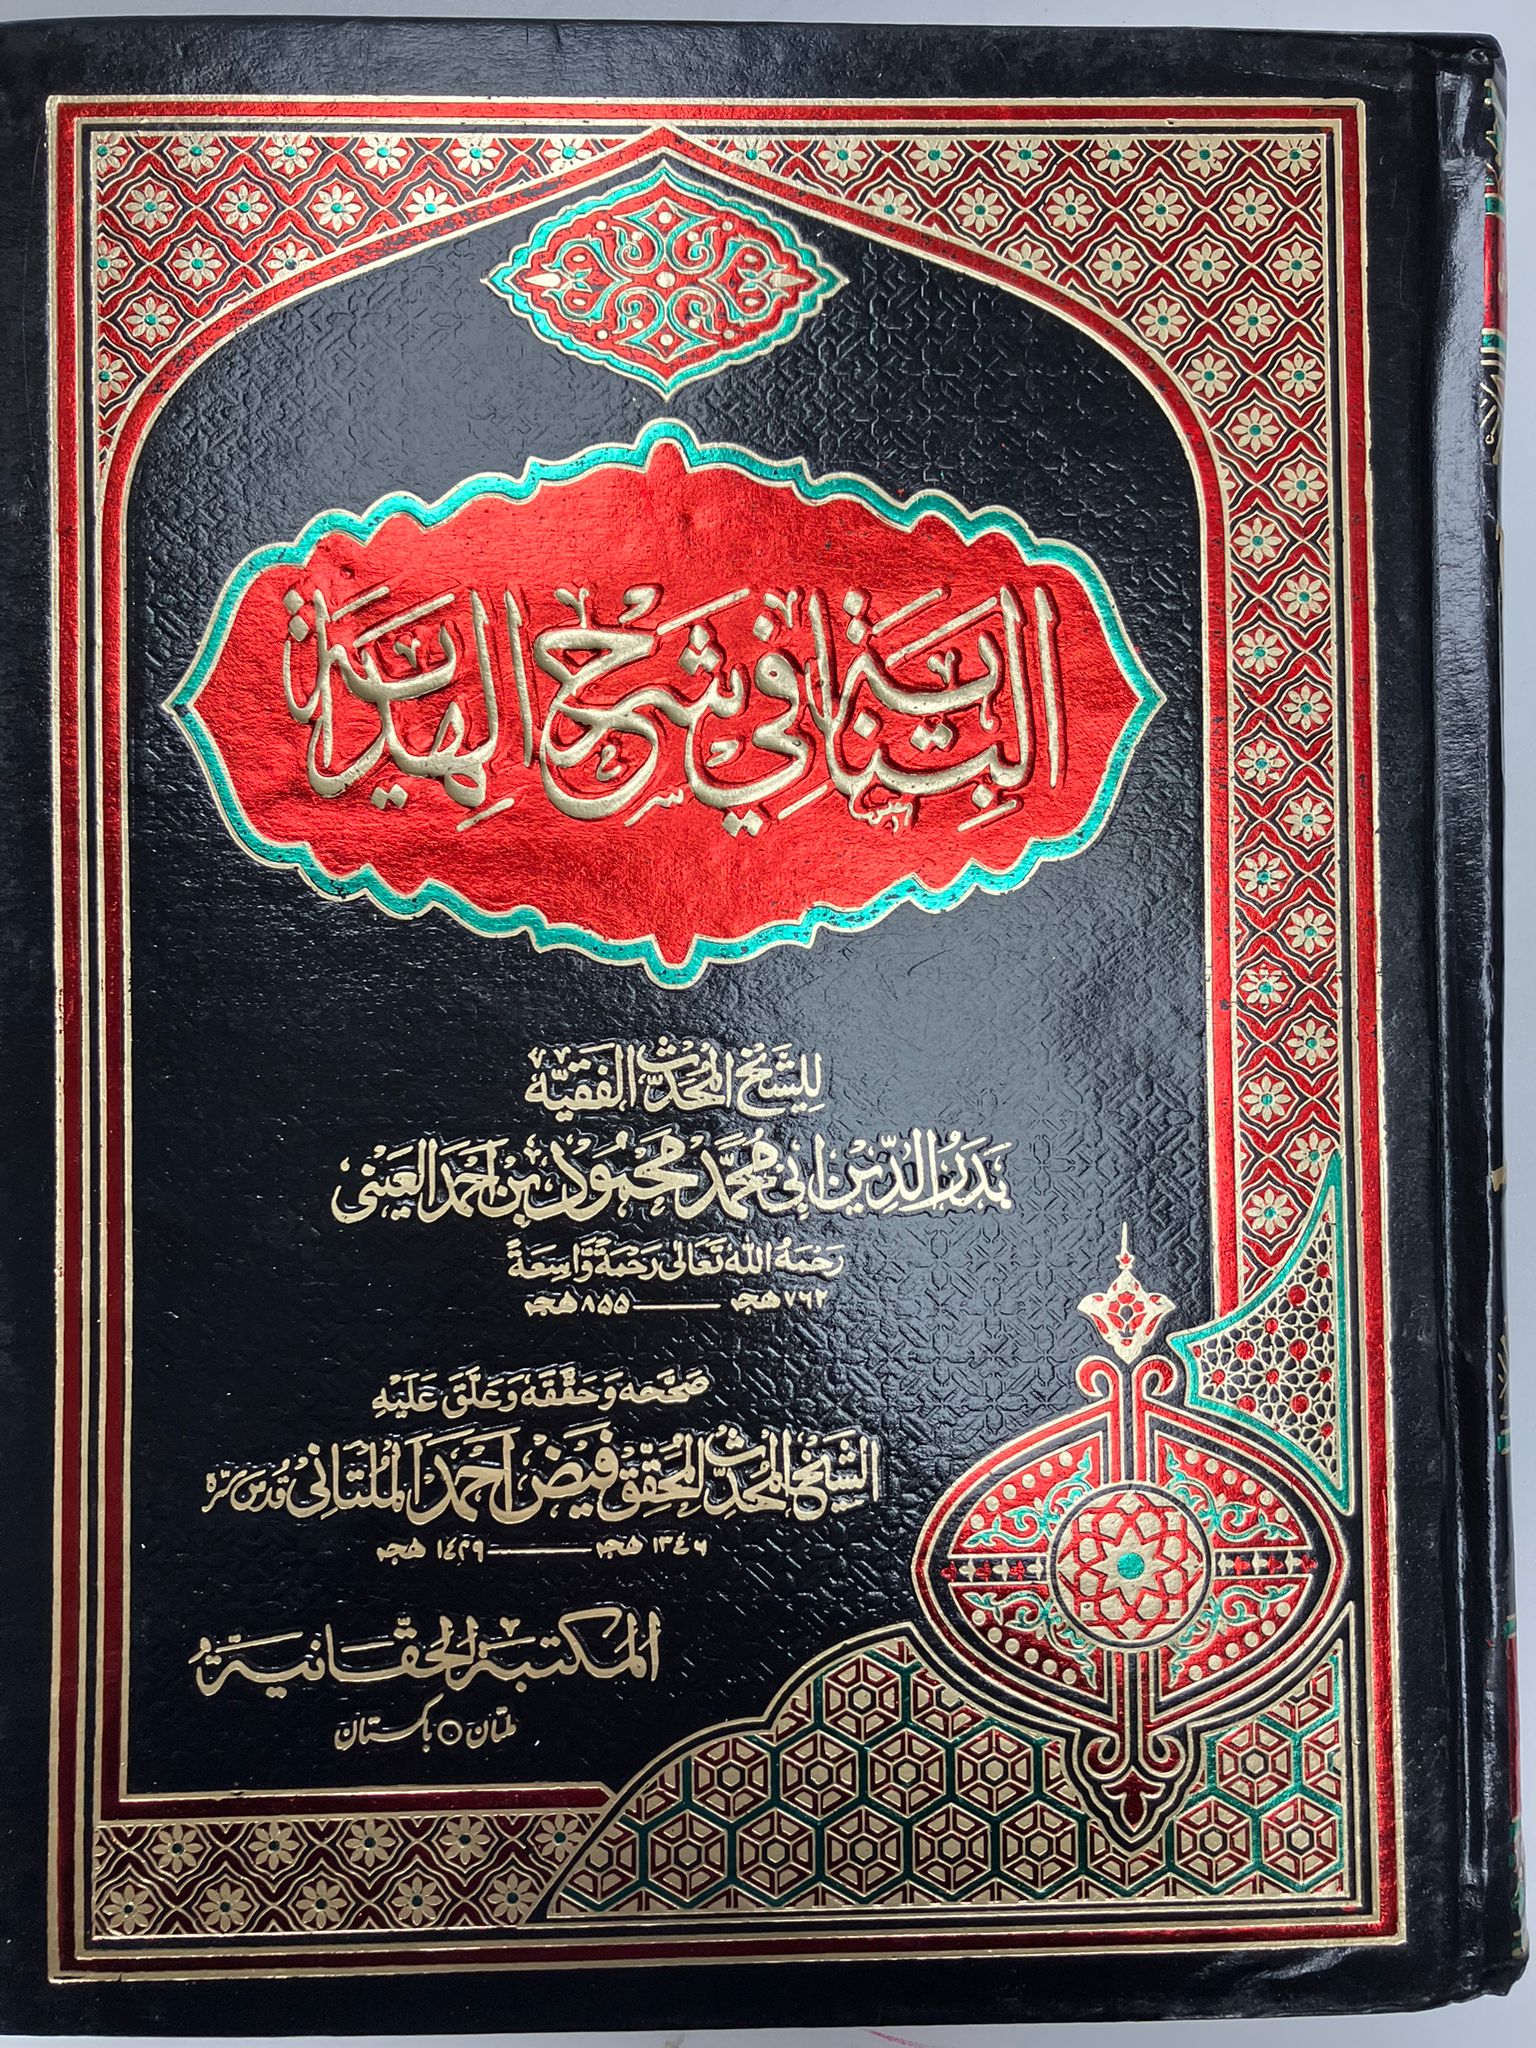 البناية في شرح الهداية
للشيخ المحدث الفقيه
بدر الدين ابي محمد محمود بن احمد العيني
رحمه الله تعالى رحمة واسعة
٧٦٢ هجـ ——— ٨٥٥ هجـ
صححه وحققه وعلق عليه
الشيخ المحدث المحقق فيض احمد الملتاني قدس سره
١٣٤٦ هجـ ——— ١٤٢٩ هجـ
المكتبة الحقانية
ملتان ○ باكستان